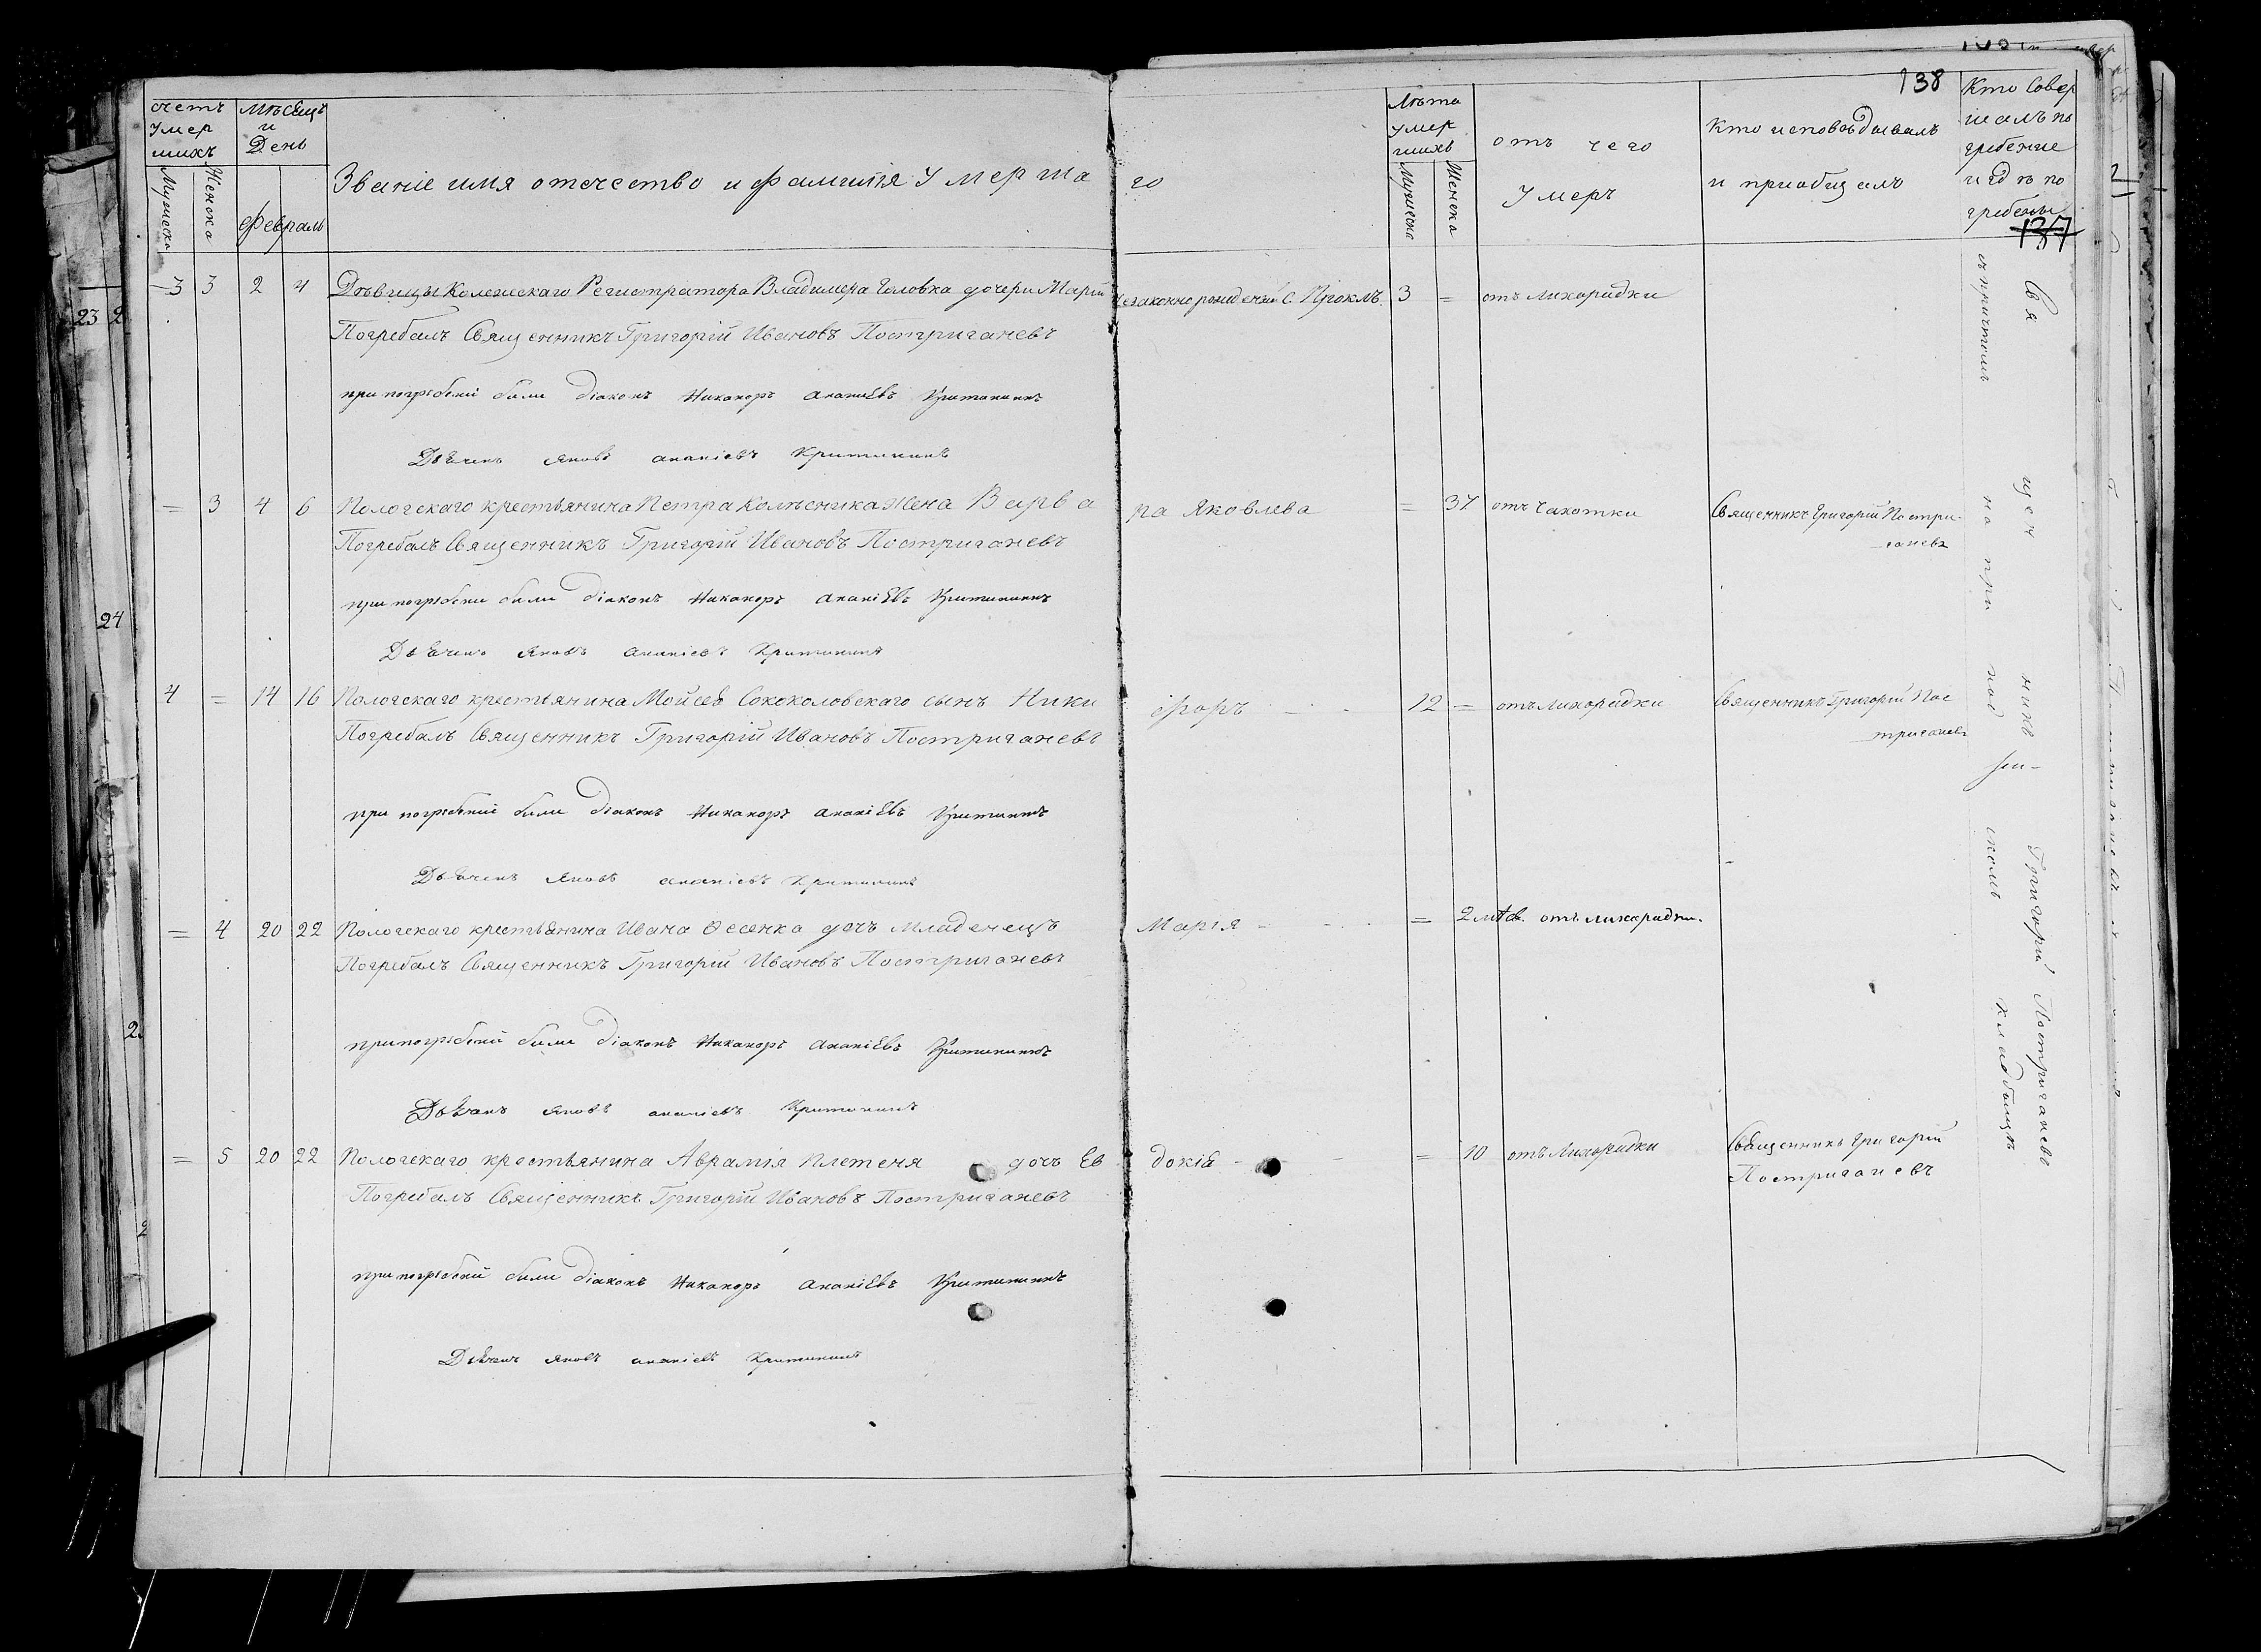 138
счетъ умер шихъ
Мужеска Женска
Мѣсяцъ и День
Февраль
Званіе имя отечество и фамилія Умерша го
Лѣта умер шихъ
Мужеска Женска
отъ чего Умеръ
Кто исповѣдывалъ и приобщалъ
Кто Совер шалъ по гребение и гдѣ по гребены
137
3 3 2 4 Дѣвицы Колежскаго Регистратора Владимера Головка дочери Маріи незаконно рожденый с. Проклъ. 3 = отъ лихорадки
Погребалъ Священникъ Григорій Ивановъ Постриганевъ
при погребеніи были діаконъ Никаноръ Ананіевъ Критининъ
Дьячекъ Яковъ Ананіевъ Критининъ
= 3 4 6 Пологскаго крестьянина Петра Колѣсника жена Варва ра Яковлева = 37 отъ Чахотки Священникъ Григорій Постри-
ганевъ
Погребалъ Священникъ Григорій Ивановъ Постриганевъ
при погребени были діаконъ Никаноръ Ананіевъ Критининъ
Дьячекъ Яковъ Ананіевъ Критининъ
4 = 14 16 Пологскаго крестьянина Мойсея Сококоловскаго сынъ Ники форъ 12 = отъ Лихорадки Священникъ Григорій Пос
триганевъ
Погребалъ Священникъ Григорій Ивановъ Постриганевъ
при погребеніи были діаконъ Никаноръ Ананіевъ Критининъ
Дьячекъ Яковъ Ананіевъ Критининъ
= 4 20 22 Пологскаго крестьянина Ивана Ѳесенка дочь Младенецъ Марія = 2 отъ лихорадки.
Погребалъ Священникъ Григорій Ивановъ Постриганевъ
при погребеніи были діаконъ Никаноръ Ананіевъ Критининъ
Дьячекъ Яковъ Ананіевъ Критининъ
= 5 20 22 Пологскаго крестьянина Аврамія Плетеня дочь Ев докія = 10 отъ Лихорадки Священникъ Григорій
Постриганевъ
Погребалъ Священникъ Григорій Ивановъ Постриганевъ
при погребеніи были діаконъ Никаноръ Ананіевъ Критининъ
Дьячекъ Яковъ Ананіевъ Критининъ
Священникъ Григорій Постриганевъ
съ причтомъ на приход скомъ кладбищѣ
23 2
24